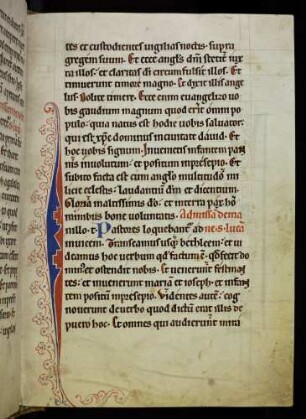 tes et custodientes uigilias noctis. supra
gregem suum. Et ecce angl's dni stetit iux
ta illos. et claritas di circum fulsit illos. Et
timuerunt timore magno. Et dixit illis ange
lus. Nolite timere. Ecce enim euangelizo uo
bis gaudium magnum quod erit omni po
pulo. quia natus est hodie uobis saluator.
qui est xpc dominus in ciuitate dauid. Et
hoc uobis signum. Inuenietis infantem pan
nis inuolutum. et positum in presepio. Et
subito facta est cum anglo multitudo mi
licie celestis. laudantium dm et dicentium.
Gloria in altissimis do. et in terra pax ho
minibus bone uoluntatis. Ad missa de ma
ne. s. lucā
in illo. t. Pastores loquebant ad
inuicem. Transeamus usq bethleem. et ui
deamus hoc uerbum qd factum. qd fecit do
min et ostendit nobis. Et uenerunt festinan
tes. et inuenerunt mariā et ioseph. et infan
tem positū in presepio. Videntes aute. cog
nouerunt de uerbo quod dictū erat illis de
puero hoc. Et omnes qui audierunt mira